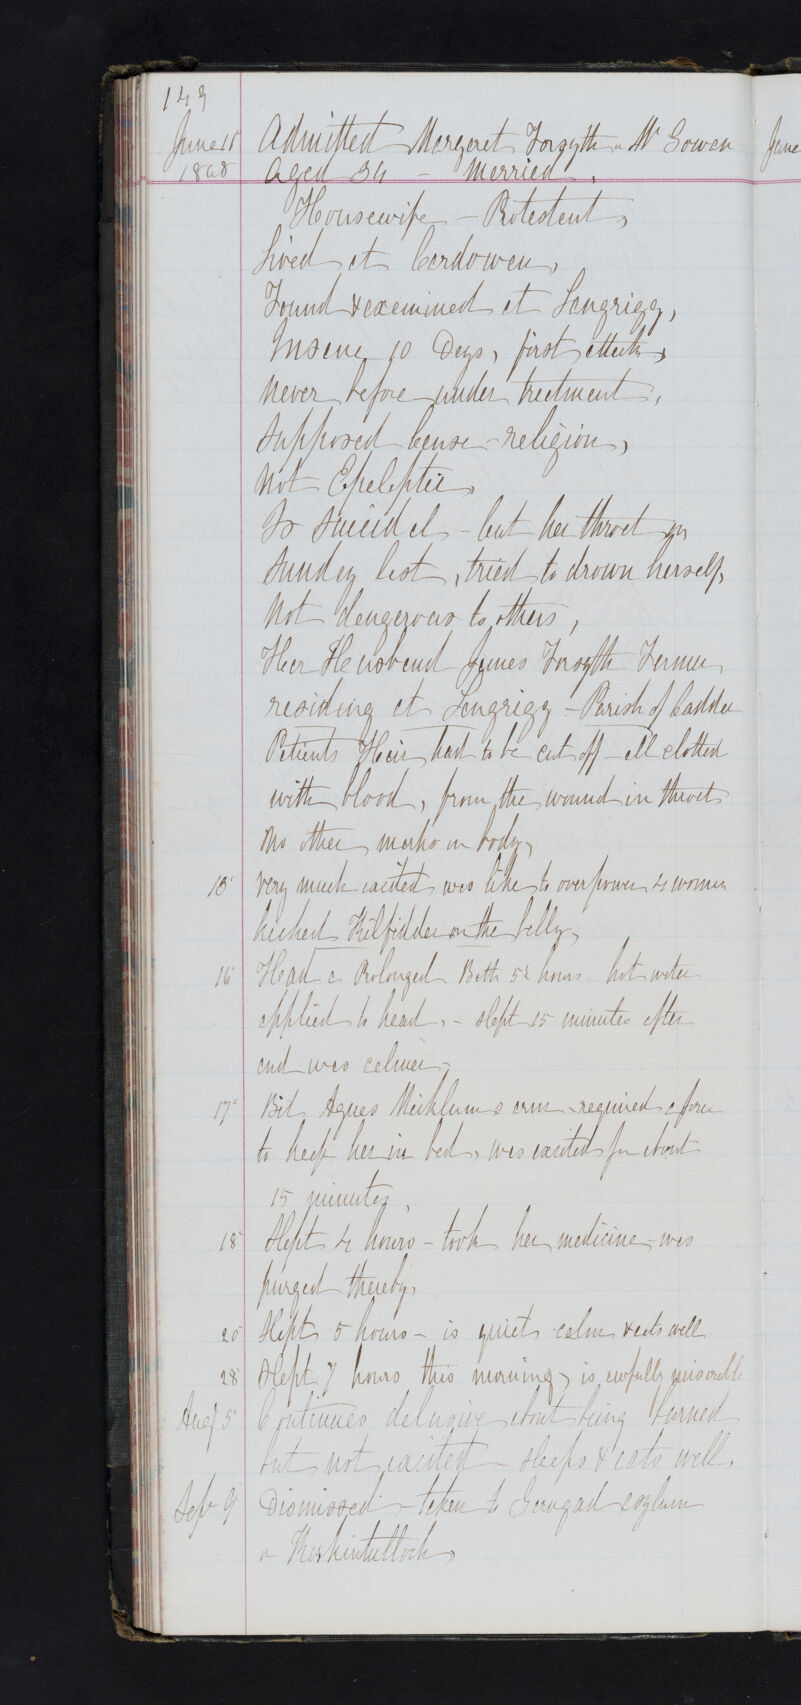 149
June 15 Admitted Margaret Forsyth or Mc Gowan June
1868 Aged 34 - Married,
Housewife - Protestant,
Lived at Cardowan,
Found & examined at Langrigg,
Insane 10 Days, first attack,
Never before under treatment,
Supposed Cause - religion,
Not Epileptic,
Is Suicidal - cut her throat on
Sunday last, tried to drown herself,
Not dangerous to others,
Her Husband James Forsyth Farmer
residing at Langrigg - Parish of Cadder
Patients Hair had to be cut off - all clotted
with blood, from the wound in throat
No other marks on body,
15 Very much excited was like to overpower 4 women
kicked Kilfidder on the belly,
16 Had a Prolonged Bath 5½ hours hot water
applied to head, - slept 15 minutes after
and was calmer,
17 Bit Agnes Meiklums arm - required a force
to keep her in bed, was excited for about
15 minutes,
18 Slept 4 hours - took her medicine - was
purged thereby,
20 Slept 5 hours - is quiet calm & eats well
28 Slept 7 hours this morning, is awfully miserable
Augt 5 Continues delusive about being burned
but not excited - sleeps & eats well.
Sep 9 Dismissed - taken to Garngad asylum
or Kirkintulloch,